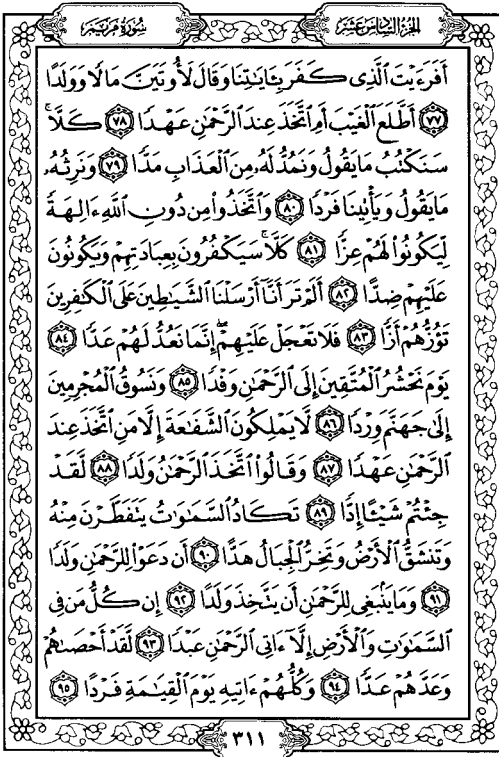 سُورَةُ مَرْيَم الجُزْءُ السَّادِسَ عَشَرَ
أَفَرَءَيْتَ ٱلَّذِى كَفَرَ بِـَٔايَٰتِنَا وَقَالَ لَأُوتَيَنَّ مَالًا وَوَلَدًا
٧٧ أَطَّلَعَ ٱلْغَيْبَ أَمِ ٱتَّخَذَ عِندَ ٱلرَّحْمَٰنِ عَهْدًا ٧٨ كَلَّا ۚ
سَنَكْتُبُ مَا يَقُولُ وَنَمُدُّ لَهُۥ مِنَ ٱلْعَذَابِ مَدًّا ٧٩ وَنَرِثُهُۥ
مَا يَقُولُ وَيَأْتِينَا فَرْدًا ٨٠ وَٱتَّخَذُوا۟ مِن دُونِ ٱللَّهِ ءَالِهَةً
لِّيَكُونُوا۟ لَهُمْ عِزًّا ٨١ كَلَّا ۚ سَيَكْفُرُونَ بِعِبَادَتِهِمْ وَيَكُونُونَ
عَلَيْهِمْ ضِدًّا ٨٢ أَلَمْ تَرَ أَنَّآ أَرْسَلْنَا ٱلشَّيَٰطِينَ عَلَى ٱلْكَٰفِرِينَ
تَؤُزُّهُمْ أَزًّا ٨٣ فَلَا تَعْجَلْ عَلَيْهِمْ ۖ إِنَّمَا نَعُدُّ لَهُمْ عَدًّا ٨٤
يَوْمَ نَحْشُرُ ٱلْمُتَّقِينَ إِلَى ٱلرَّحْمَٰنِ وَفْدًا ٨٥ وَنَسُوقُ ٱلْمُجْرِمِينَ
إِلَىٰ جَهَنَّمَ وِرْدًا ٨٦ لَّا يَمْلِكُونَ ٱلشَّفَٰعَةَ إِلَّا مَنِ ٱتَّخَذَ عِندَ
ٱلرَّحْمَٰنِ عَهْدًا ٨٧ وَقَالُوا۟ ٱتَّخَذَ ٱلرَّحْمَٰنُ وَلَدًا ٨٨ لَّقَدْ
جِئْتُمْ شَيْـًٔا إِدًّا ٨٩ تَكَادُ ٱلسَّمَٰوَٰتُ يَتَفَطَّرْنَ مِنْهُ
وَتَنشَقُّ ٱلْأَرْضُ وَتَخِرُّ ٱلْجِبَالُ هَدًّا ٩٠ أَن دَعَوْا۟ لِلرَّحْمَٰنِ وَلَدًا
٩١ وَمَا يَنۢبَغِى لِلرَّحْمَٰنِ أَن يَتَّخِذَ وَلَدًا ٩٢ إِن كُلُّ مَن فِى
ٱلسَّمَٰوَٰتِ وَٱلْأَرْضِ إِلَّآ ءَاتِى ٱلرَّحْمَٰنِ عَبْدًا ٩٣ لَّقَدْ أَحْصَىٰهُمْ
وَعَدَّهُمْ عَدًّا ٩٤ وَكُلُّهُمْ ءَاتِيهِ يَوْمَ ٱلْقِيَٰمَةِ فَرْدًا ٩٥
٣١١